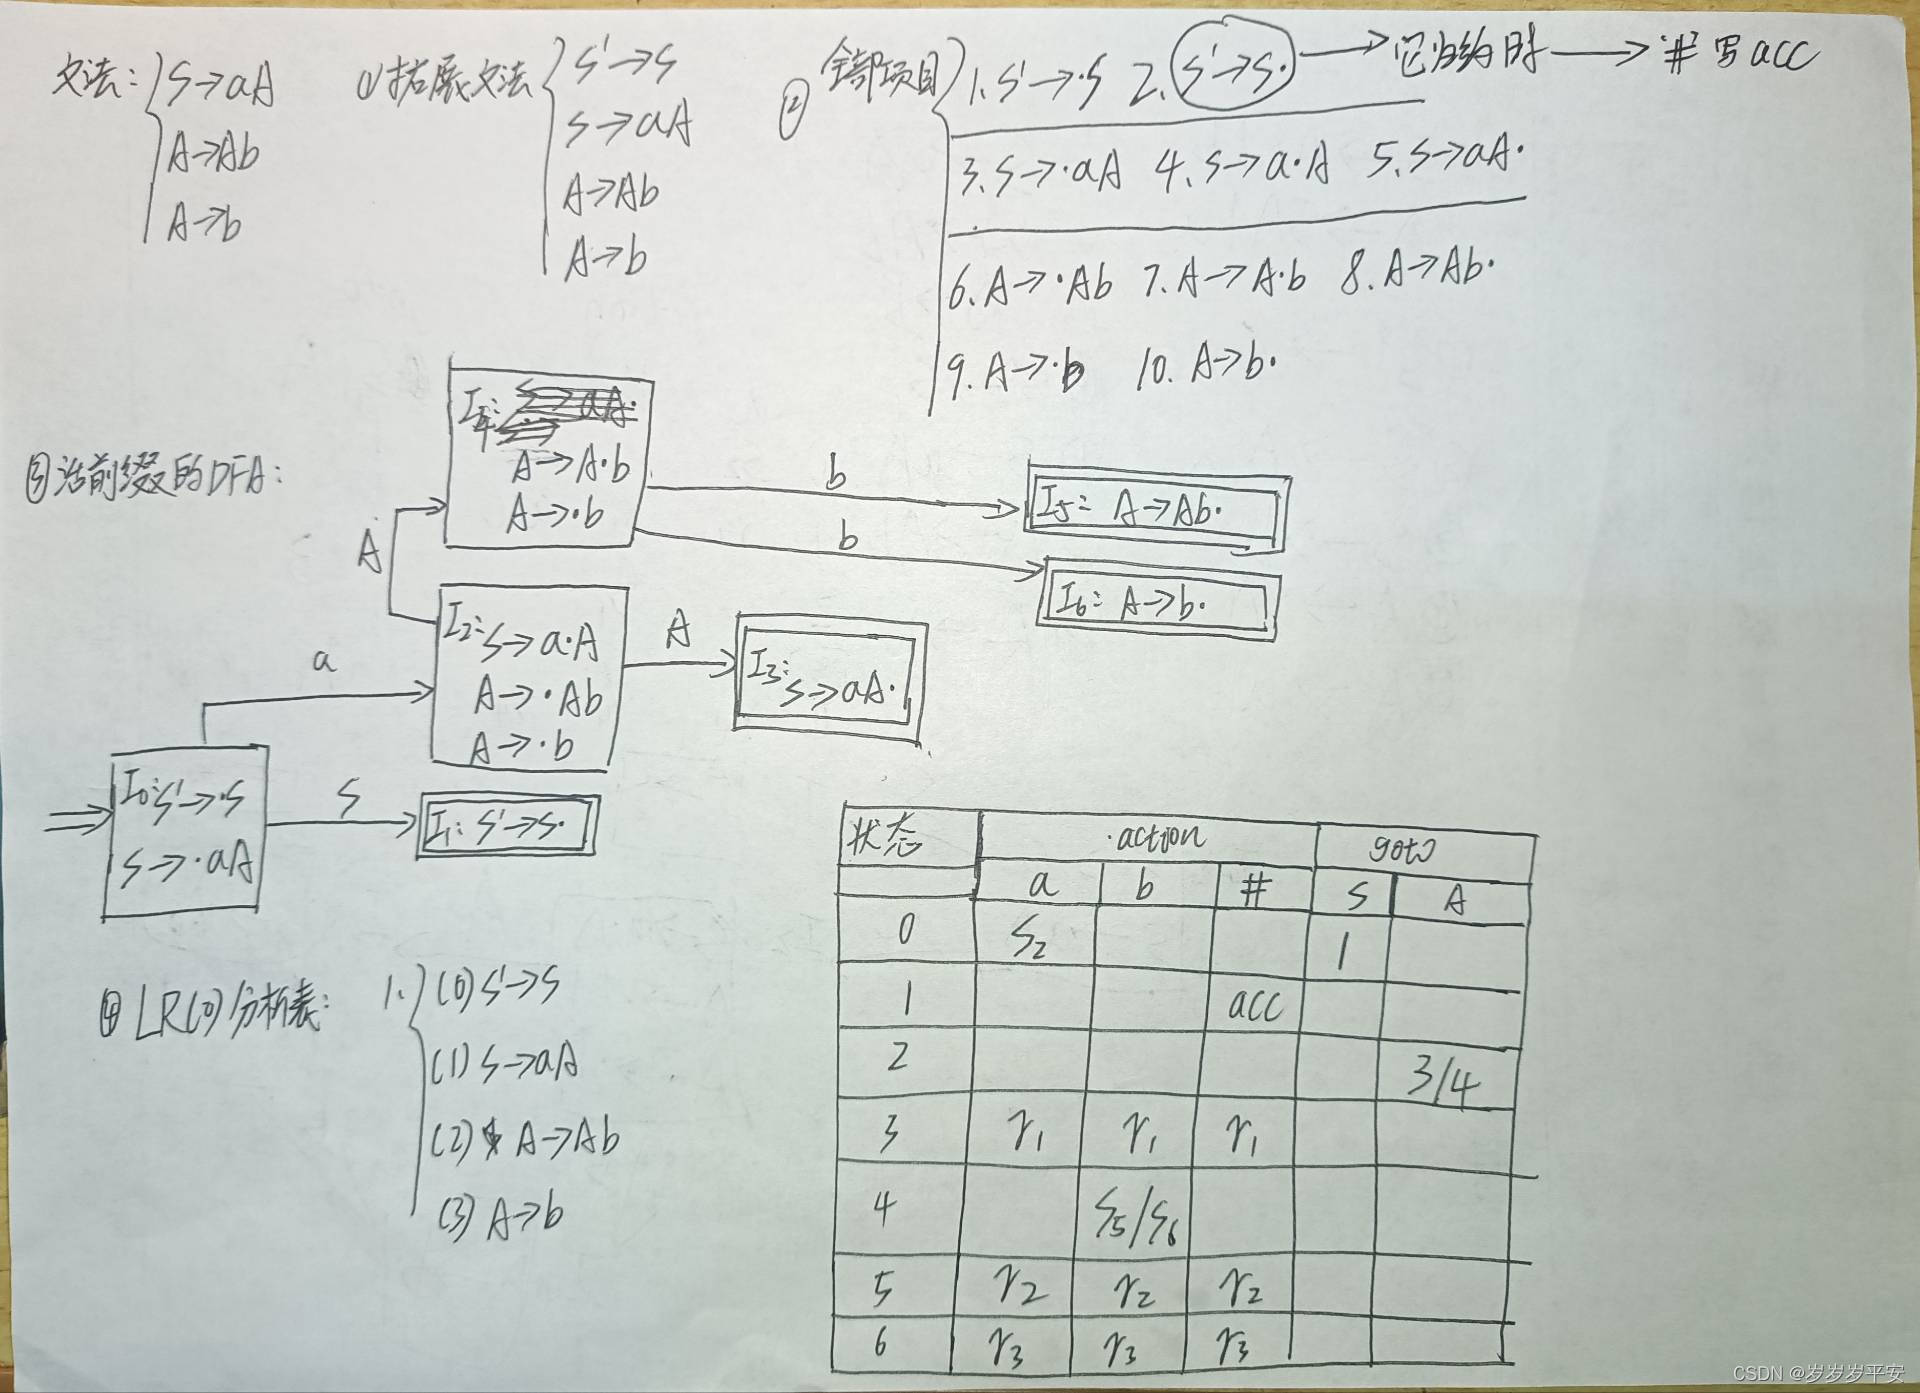 文法: S→aA
A→Ab
A→b
① 拓展文法 S'→S
S→aA
A→Ab
A→b
② 全部项目 1. S'→·S 2. S'→S· → 它归约时 → '#'写acc
3. S→·aA 4. S→a·A 5. S→aA·
6. A→·Ab 7. A→A·b 8. A→Ab·
9. A→·b 10. A→b·
③ 活前缀的DFA:
I4: S→aA·
A→A·b
A→·b
b
b
I5: A→Ab·
I6: A→b·
A
I2: S→a·A
A→·Ab
A→·b
A
I3: S→aA·
a
I0: S'→·S
S→·aA
S
I1: S'→S·
④ LR(0)分析表: 1. (0) S'→S
(1) S→aA
(2) A→Ab
(3) A→b
状态 action goto
a b # S A
0 S2 1
1 acc
2 3/4
3 r1 r1 r1
4 S5/S6
5 r2 r2 r2
6 r3 r3 r3
CSDN @岁岁岁平安